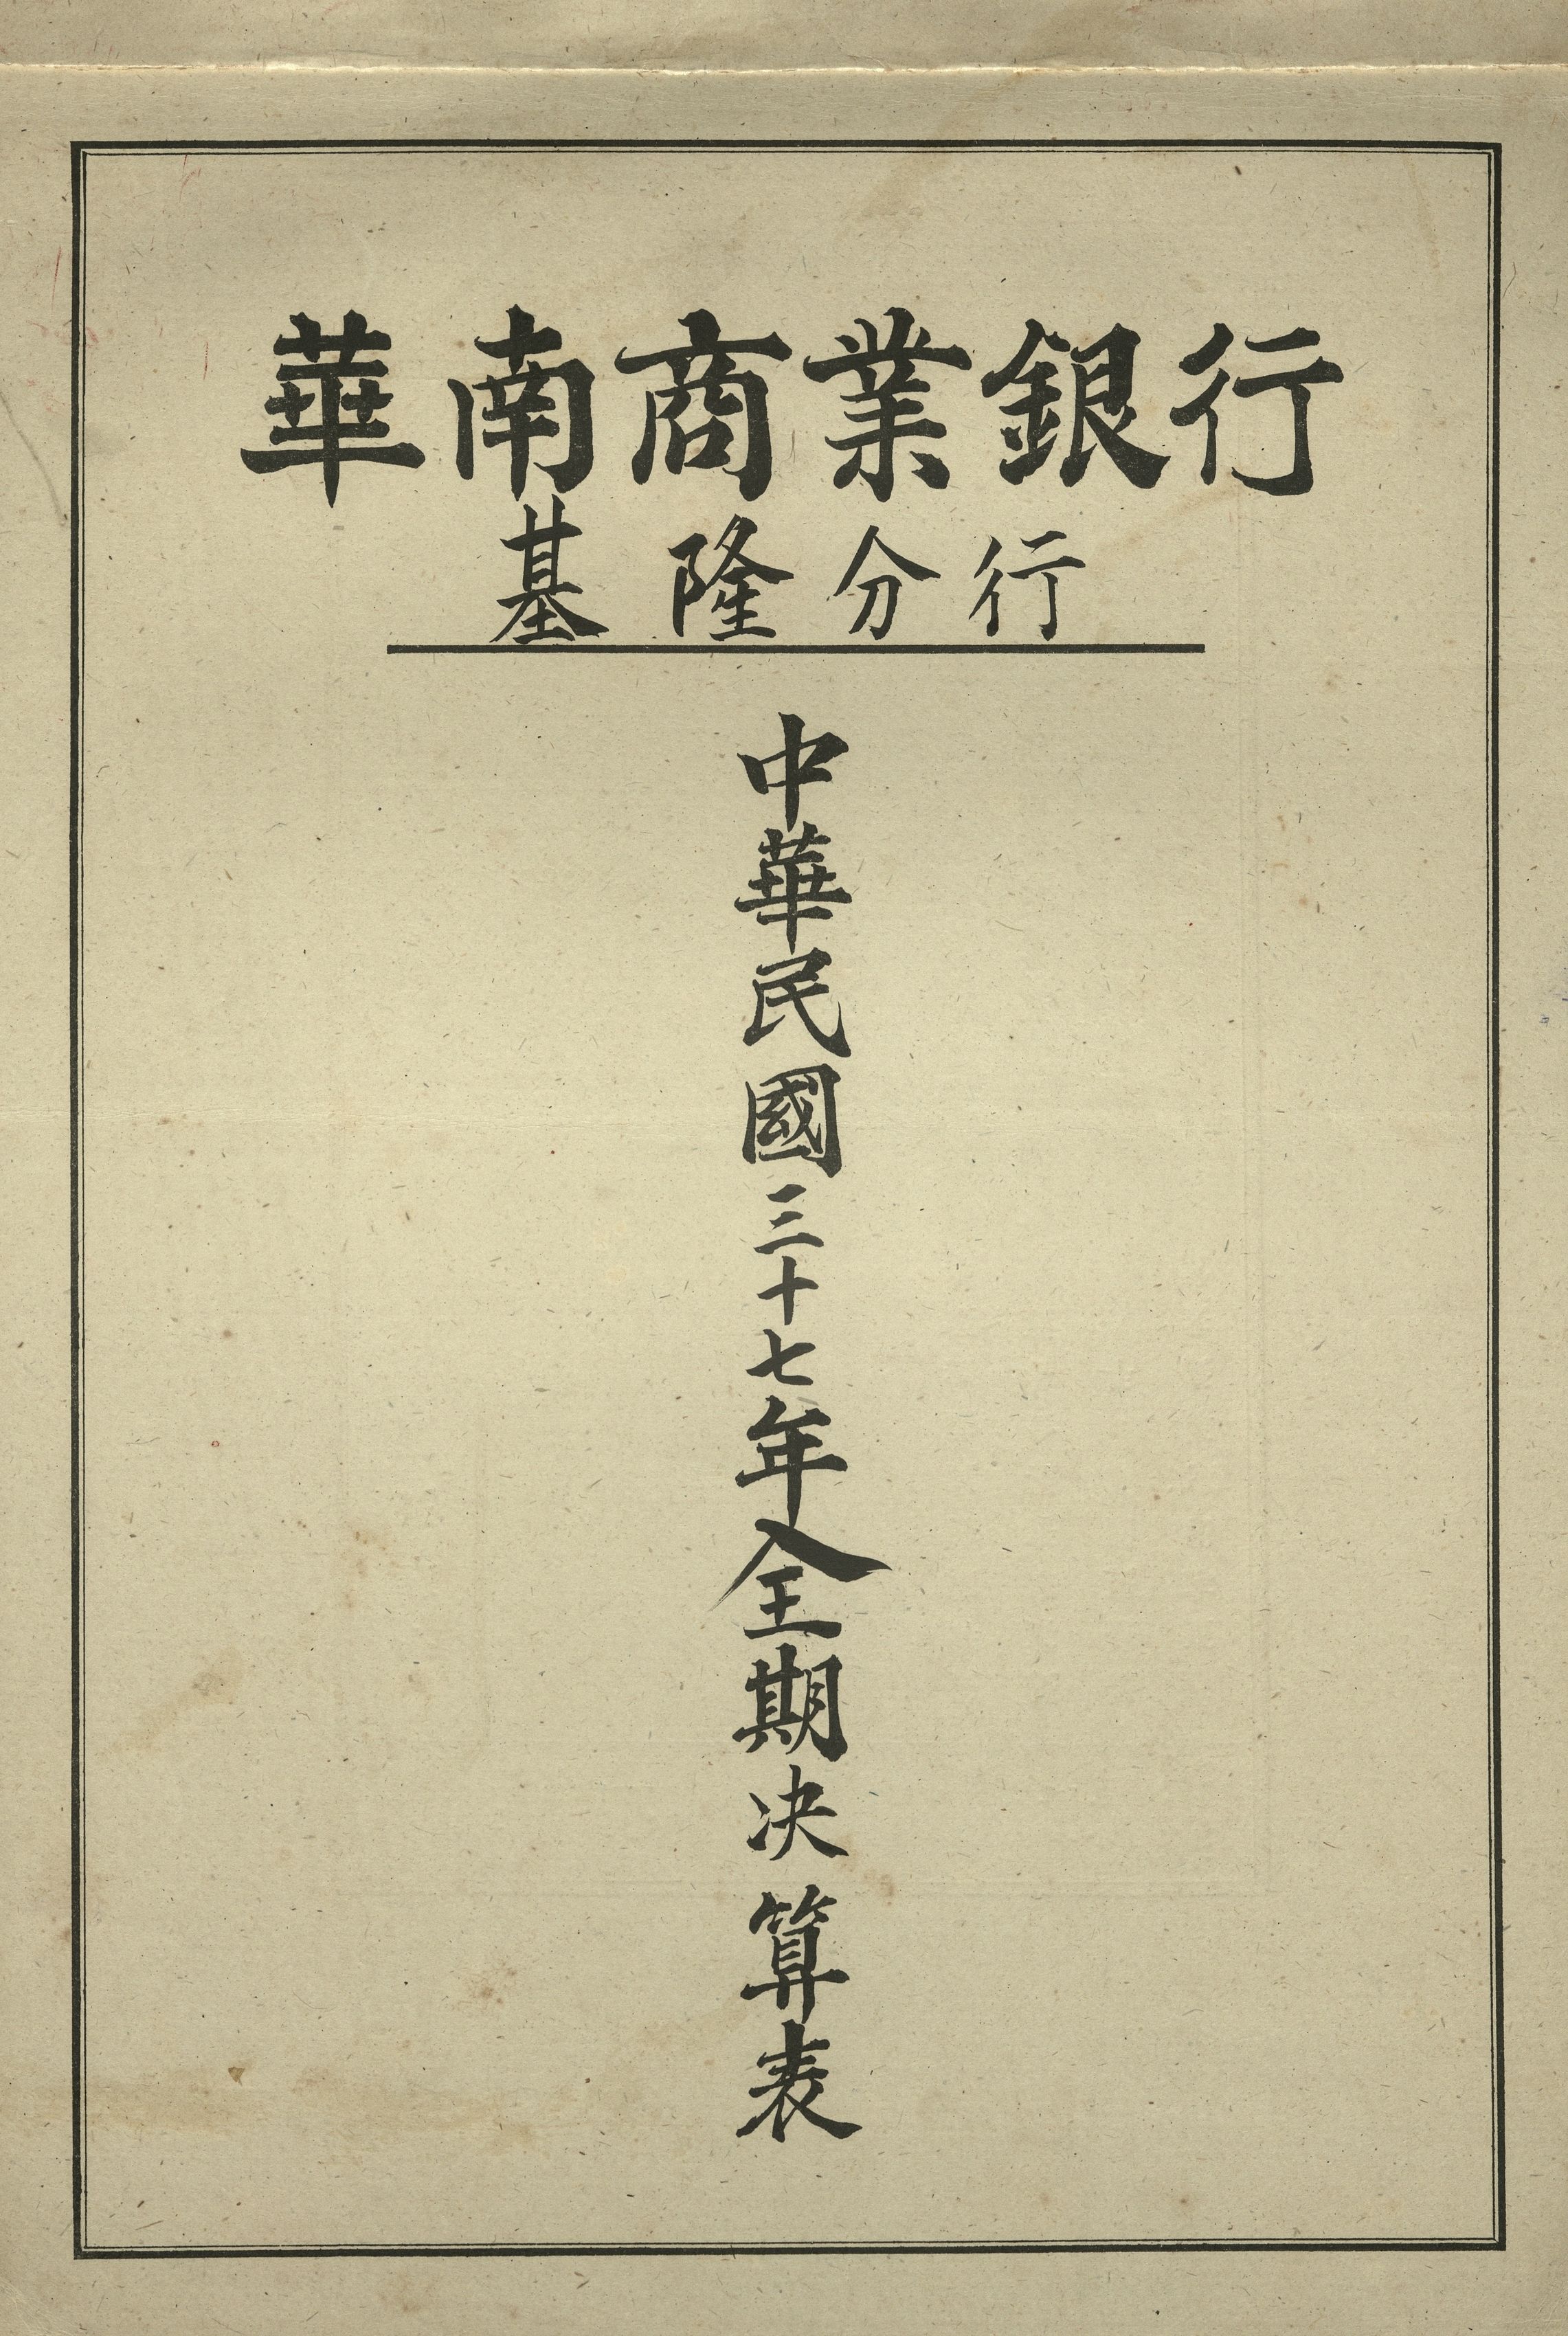 華南商業銀行
基隆分行
中華民國三十七年全期決算表